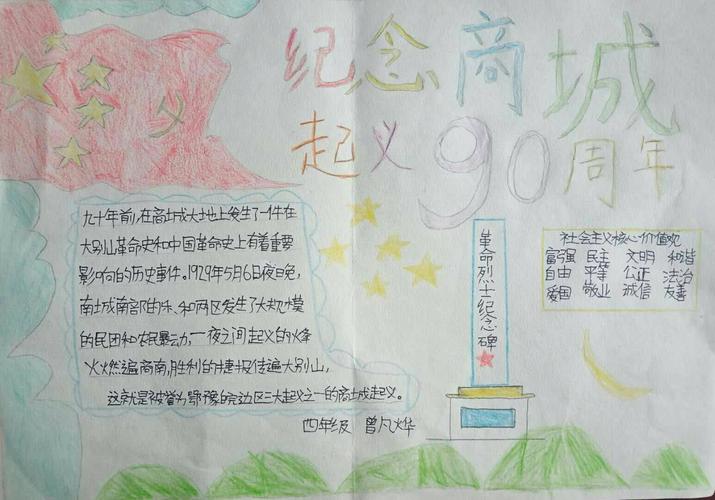 纪念商城
起义90周年
九十年前,在商城大地上发生了一件在
大别山革命史和中国革命史上有着重要
影响的历史事件。1929年5月6日夜晚,
南城南部的乐、和两区发生了大规模
的民团和农民暴动,一夜之间起义的烽
火燃遍商南,胜利的捷报传遍大别山,
这就是被誉为鄂豫皖边区三大起义之一的商城起义。
四年级 曾凡烨
革命烈士纪念碑
社会主义核心价值观
富强 民主 文明 和谐
自由 平等 公正 法治
爱国 敬业 诚信 友善